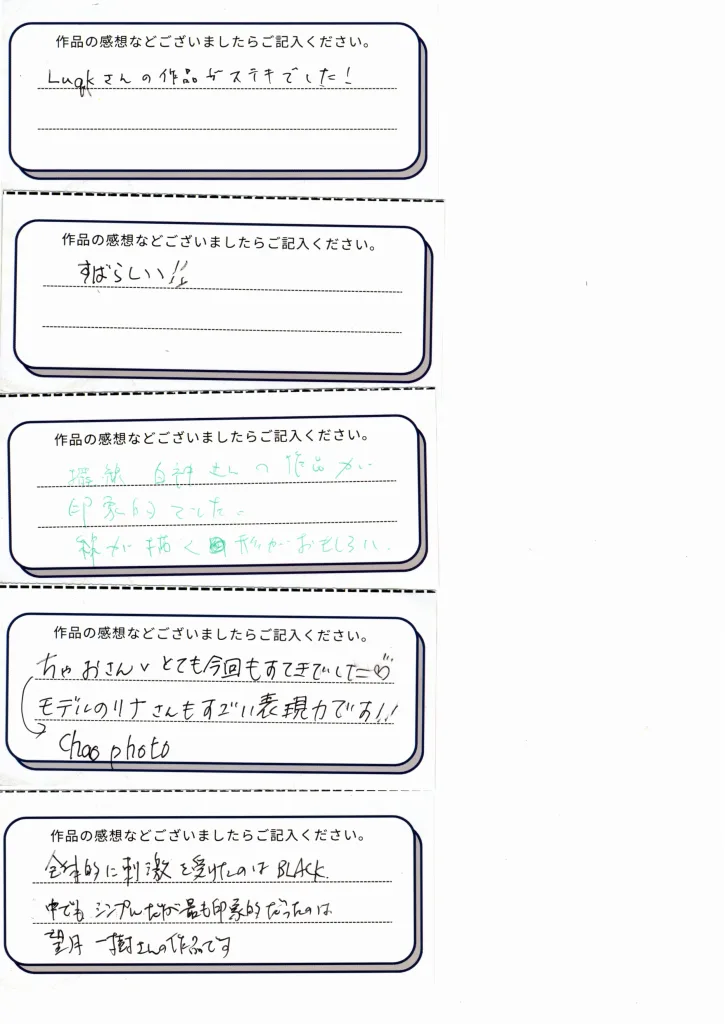 作品の感想などございましたらご記入ください。
さんの作品がステキでした!
作品の感想などございましたらご記入ください。
すばらしい!!
作品の感想などございましたらご記入ください。
白神さんの作品が
印象的でした。
線が描く形がおもしろい。
作品の感想などございましたらご記入ください。
ちゃおさん、とても今回もすてきでした♡
モデルのリナさんもすごい表現力です!!
Chao photo
作品の感想などございましたらご記入ください。
全体的に刺激を受けたのはBLACK.
中でもシンプルだが最も印象的だったのは
望月 一樹さんの作品です